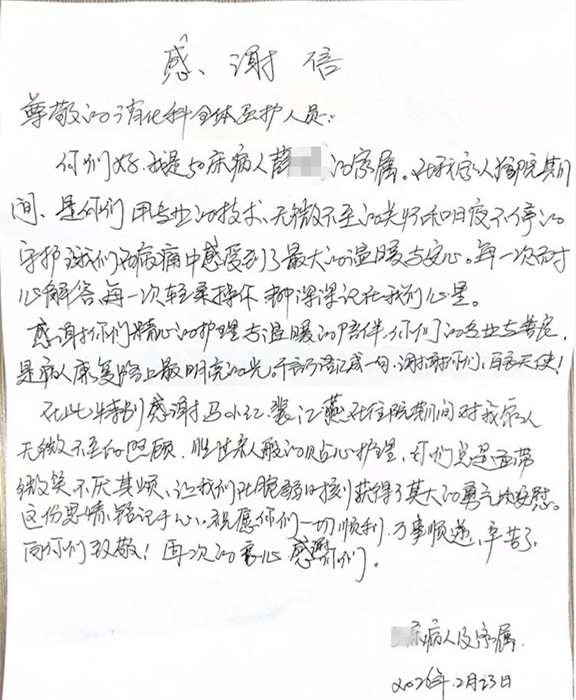 感谢信
尊敬的消化科全体医护人员:
你们好,我是50床病人薛 的家属。在我家人住院期
间、是你们用专业的技术、无微不至的关怀和日夜不停的
守护让我们在病痛中感受到了最大的温暖与安心。每一次耐
心解答,每一次轻柔操作 都深深记在我们心里。
感谢你们精心的护理与温暖的陪伴,你们的专业与善良
是病人康复路上最明亮的光。千言万语汇成一句,谢谢你们,白衣天使!
在此特别感谢马小红,裴江燕在住院期间对我家人
无微不至的照顾,胜过亲人般的贴心护理,你们总是面带
微笑不厌其烦、让我们在脆弱时刻获得了莫大的勇气和安慰。
这份恩情铭记于心。祝愿你们一切顺利,万事顺遂,辛苦了,
向你们致敬!再次的衷心感谢你们。
床病人及家属.
2026年.2月23日